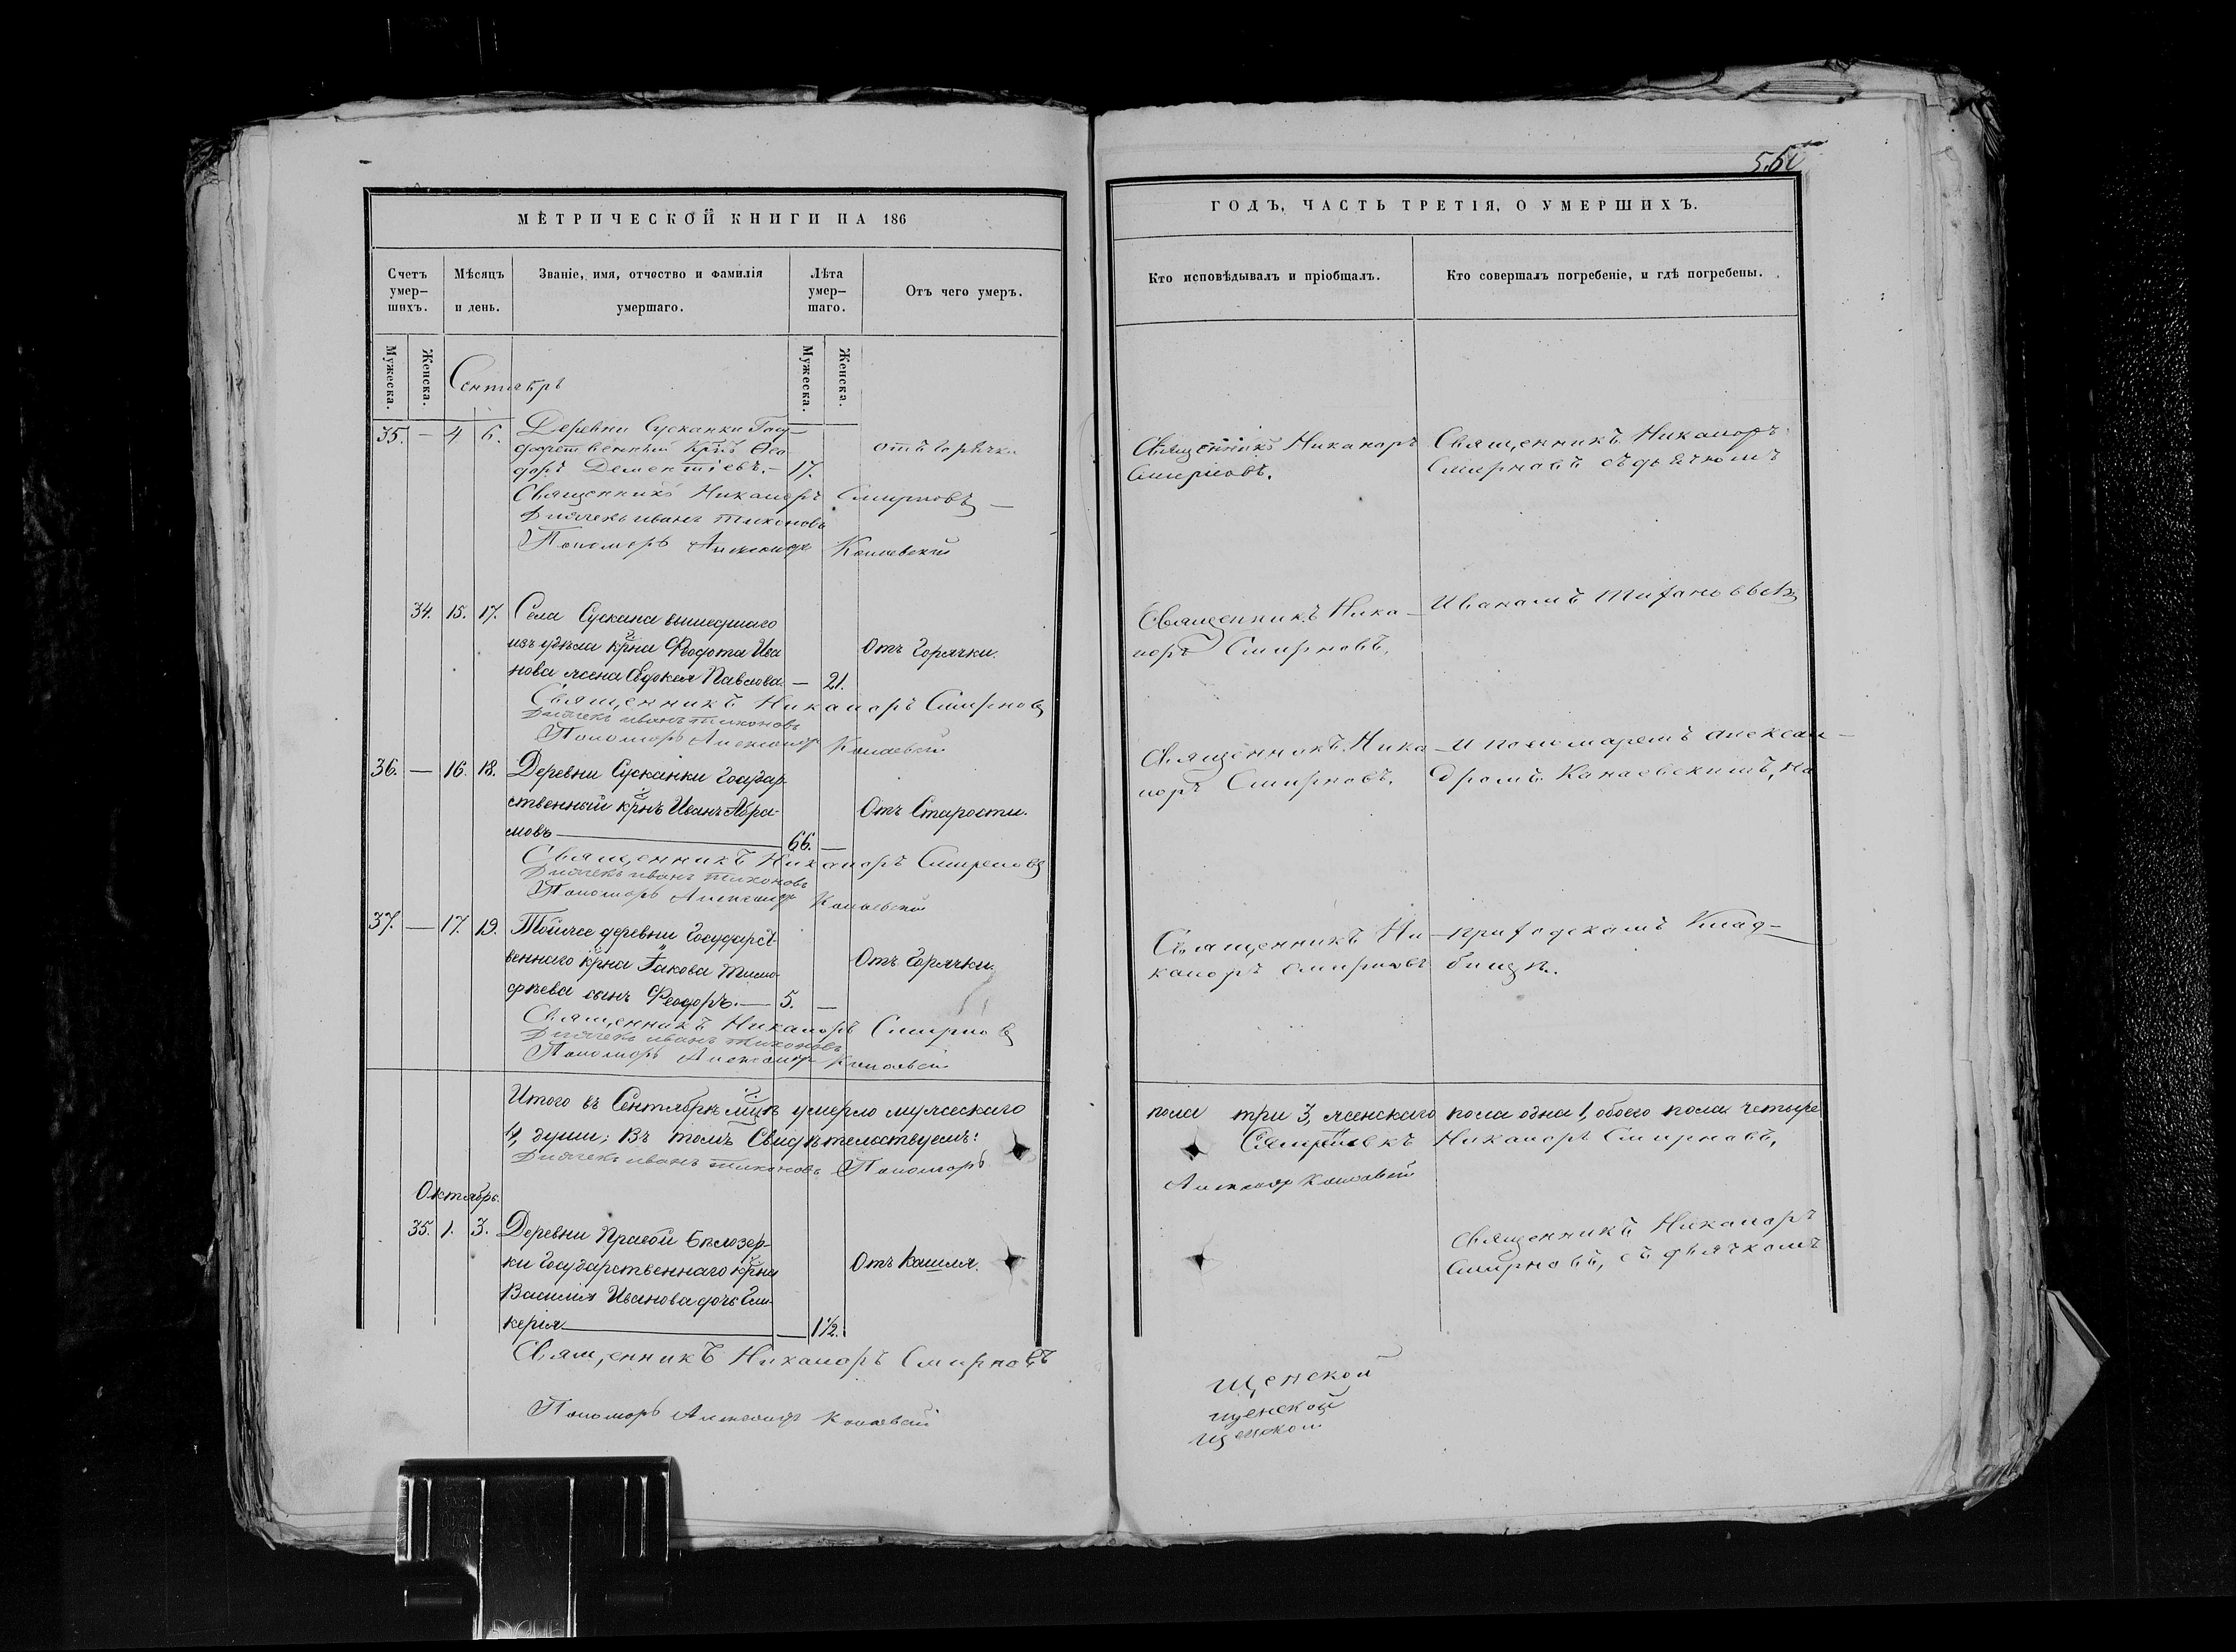 560
МЕТРИЧЕСКОЙ КНИГИ НА 186
Счетъ умер–шихъ.
Мѣсяцъ и день.
Званіе, имя, отчество и фамилія умершаго.
Лѣта умер–шаго.
Отъ чего умеръ.
Мужеска.
Женска.
Мужеска.
Женска.
Сентябрь
35. — 4 6. Деревни Сусканки Госу–
дарственный крнъ Ѳео
доръ Дементіевъ. — 17.
отъ горячки
Священникъ Никаноръ Смирновъ
Дьячекъ иванъ тихоновъ
Пономарь Александръ Канаевскій
34. 15. 17. Села Сускана вышедшаго
изъ удѣла крна Ѳеодота Ива
нова жена Евдокея Павлова. — 21.
Отъ горячки.
Священникъ Никаноръ Смирновъ
Дьячекъ иванъ тихоновъ
Пономарь Александръ Канаевскій
36. — 16. 18. Деревни Сусканки Государ–
ственный крнъ Иванъ Абра–
мовъ — 66. —
Отъ Старости.
Священникъ Никаноръ Смирновъ
Дьячекъ иванъ тихоновъ
Пономарь Александръ Канаевскій
37. — 17. 19. Тойже деревни Государст–
веннаго крна Іакова Тимо–
фѣева сынъ Ѳеодоръ. — 5. —
Отъ Горячки.
Священникъ Никаноръ Смирновъ
Дьячекъ иванъ тихоновъ
Пономарь Александръ Канаевскій
Итого въ Сентябрѣ мцѣ умерло мужескаго
4, души; Въ томъ Свидѣтельствуемъ:
Дьячекъ иванъ тихоновъ Пономарь
Октябрь.
35. 1. 3. Деревни Правой Бѣлозер–
ки Государственнаго крна
Василія Иванова дочь Гли–
керія — 1½.
Отъ Кашля.
Священникъ Никаноръ Смирновъ
Пономарь Александръ Канаевскій
ГОДЪ, ЧАСТЬ ТРЕТІЯ, О УМЕРШИХЪ.
Кто исповѣдывалъ и пріобщалъ.
Кто совершалъ погребеніе, и гдѣ погребены.
Священникъ Никаноръ
Смирновъ.
Священникъ Никаноръ
Смирновъ съ дьячкомъ
Священникъ Ника–
норъ Смирновъ.
Иваномъ Тихановымъ
Священникъ Ника–
норъ Смирновъ.
и пономаремъ алексан–
дромъ Канаевскимъ, на
Священникъ Ни–
каноръ Смирновъ
приходскомъ Клад–
бищѣ.
пола три 3, женскаго пола одна 1, обоего пола четыре
Священникъ Никаноръ Смирновъ,
Александръ Канаевскій
Священникъ Никаноръ
Смирновъ, съ дьячкомъ
щенской
щенской
щенской